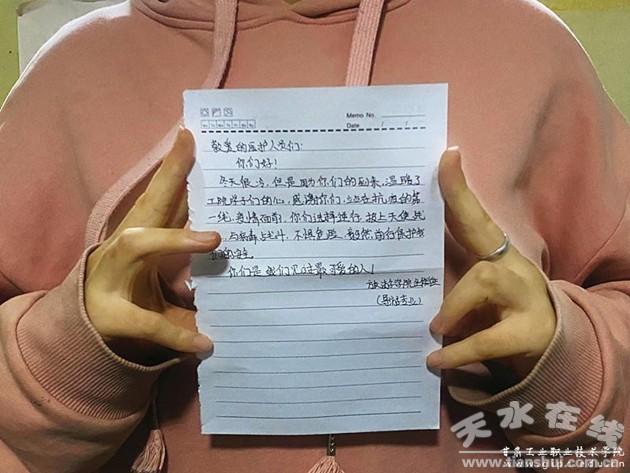 Memo No.
Date / /
敬爱的医护人员们:
你们好!
冬天很冷,但是因为你们的到来,温暖了
工院学子们的心,感谢你们,站在抗疫的第
一线,疫情面前,你们选择逆行,披上天使战
与病毒战斗,不惧危险,毅然前行保护
我们的安全
你们是我们见过最可爱的人!
旅游学院
天水在线
甘肃工业职业技术学院